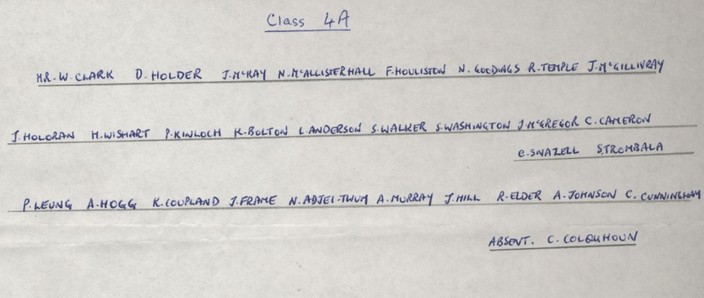 Class 4A
MR. W. CLARK D. HOLDER J. McKAY N. McALLISTER HALL F. HOULISTON N. GOODINGS R. TEMPLE J. McGILLIVRAY
J. HOLORAN M. WISHART P. KINLOCH K. BOLTON L. ANDERSON S. WALKER S. WASHINGTON J. McGREGOR C. CAMERON
E. SWAZELL S. TROMBALA
P. LEUNG A. HOGG K. COUPLAND J. FRAME N. ADJEI-TWUM A. MURRAY J. HILL R. ELDER A. JOHNSON C. CUNNINGHAM
ABSENT. C. COLQUHOUN